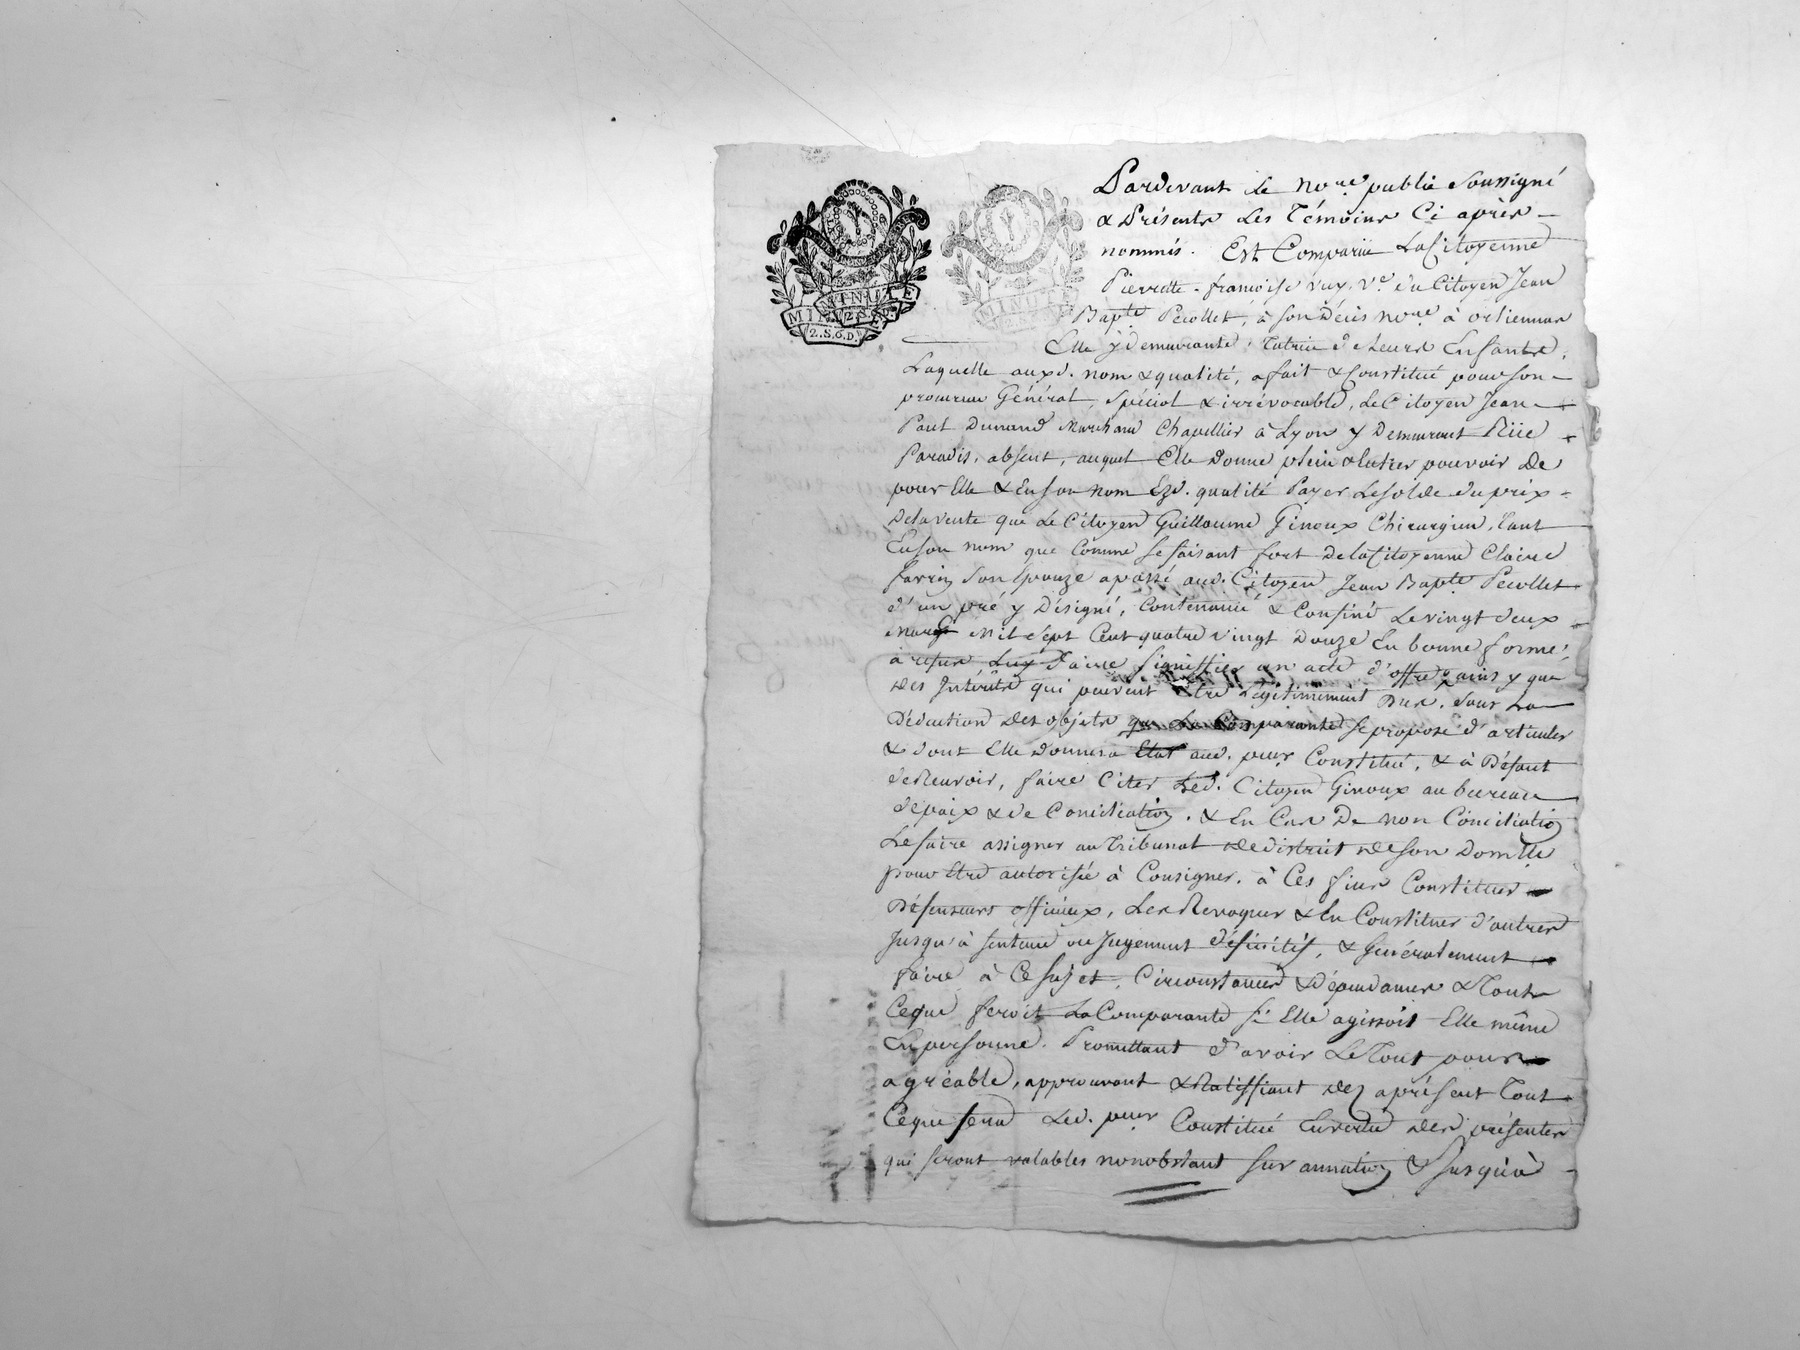 MINUTE
2.S.6.D.
MINUTE
Pardevant Le Nore public Soussigné
& Présents Les Témoins Ci après
nommés. Est Comparüe La Citoyenne
Pierrette françoise Ve du Citoyen Jean
Bapte Pecollet, à son Décès Nore à
Elle y demeurante, Tutrice de Leurs Enfants,
Laquelle auxd. nom & qualité, a fait & Constitué pour son
procureur Général, Spécial & irrévocable, Le Citoyen Jean
Paul Dunand Marchand Chapellier à Lyon y Demeurant Rüe
Paradis, absent, auquel Elle Donne plein & Entier pouvoir De
pour Elle & En son nom Esd. qualité Payer Le solde du prix
De la vente que Le Citoyen Guillaume Ginoux Chirurgien, tant
En son nom que Comme se faisant fort De la Citoyenne Claire
son Epouze a passé aud. Citoyen Jean Bapte Pecollet
d'un pré y Désigné, Contenancé & Confiné Le vingt deux
mars Mil Sept Cent quatre vingt Douze En bonne forme,
à faire Signiffier un acte d'offre ainsy que
Des Intérêts qui peuvent Etre Légitimement Dus, Sous La
Déduction Des objets que La Comparante se propose d'articuler
& dont Elle Donnera Etat aud. peur Constitué, & à Défaut
de Recevoir, faire Citer Led. Citoyen Ginoux au bureau
de paix & de Conciliation, & En Cas De non Conciliation
Le faire assigner au Tribunal De district De son Domlle
pour Etre autorisée à Consigner, à Ces fins Constituer
Défenseurs officieux, Les Revoquer & En Constituer d'autres
Jusqu'à sentence ou Jugement définitif, & Généralement
faire à Ce sujet, Circonstances & Dépendances & Tout
Ce que feroit La Comparante si Elle agissoit Elle même
En personne. Promettant d'avoir Le Tout pour
agréable, approuvant & Ratiffiant Dez à présent Tout
Ce que fera Led. peur Constitué En vertu des présentes
qui seront valables nonobstant surannation & Jusqu'à